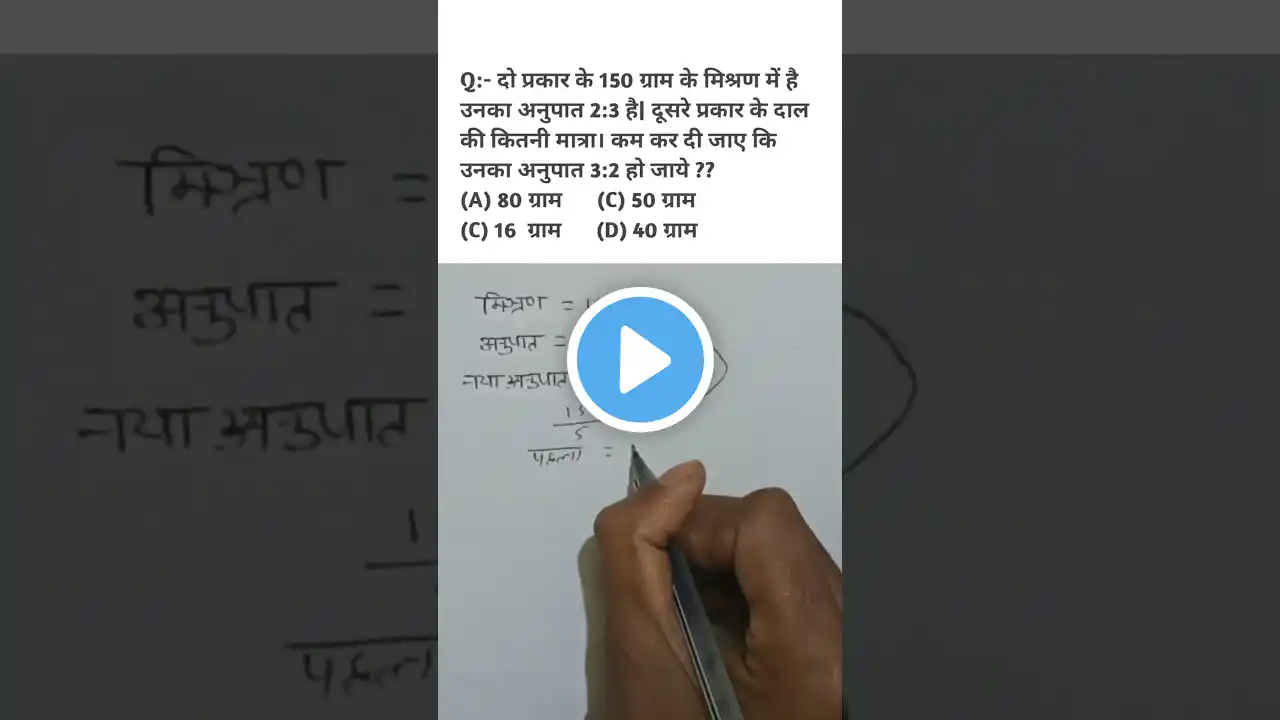 Q:- दो प्रकार के 150 ग्राम के मिश्रण में है
उनका अनुपात 2:3 है| दूसरे प्रकार के दाल
की कितनी मात्रा। कम कर दी जाए कि
उनका अनुपात 3:2 हो जाये ??
(A) 80 ग्राम (C) 50 ग्राम
(C) 16 ग्राम (D) 40 ग्राम
मिश्रण =
अनुपात =
नया अनुपात
5
पहला =
मिश्रण =
अनुपात =
नया अनुपात